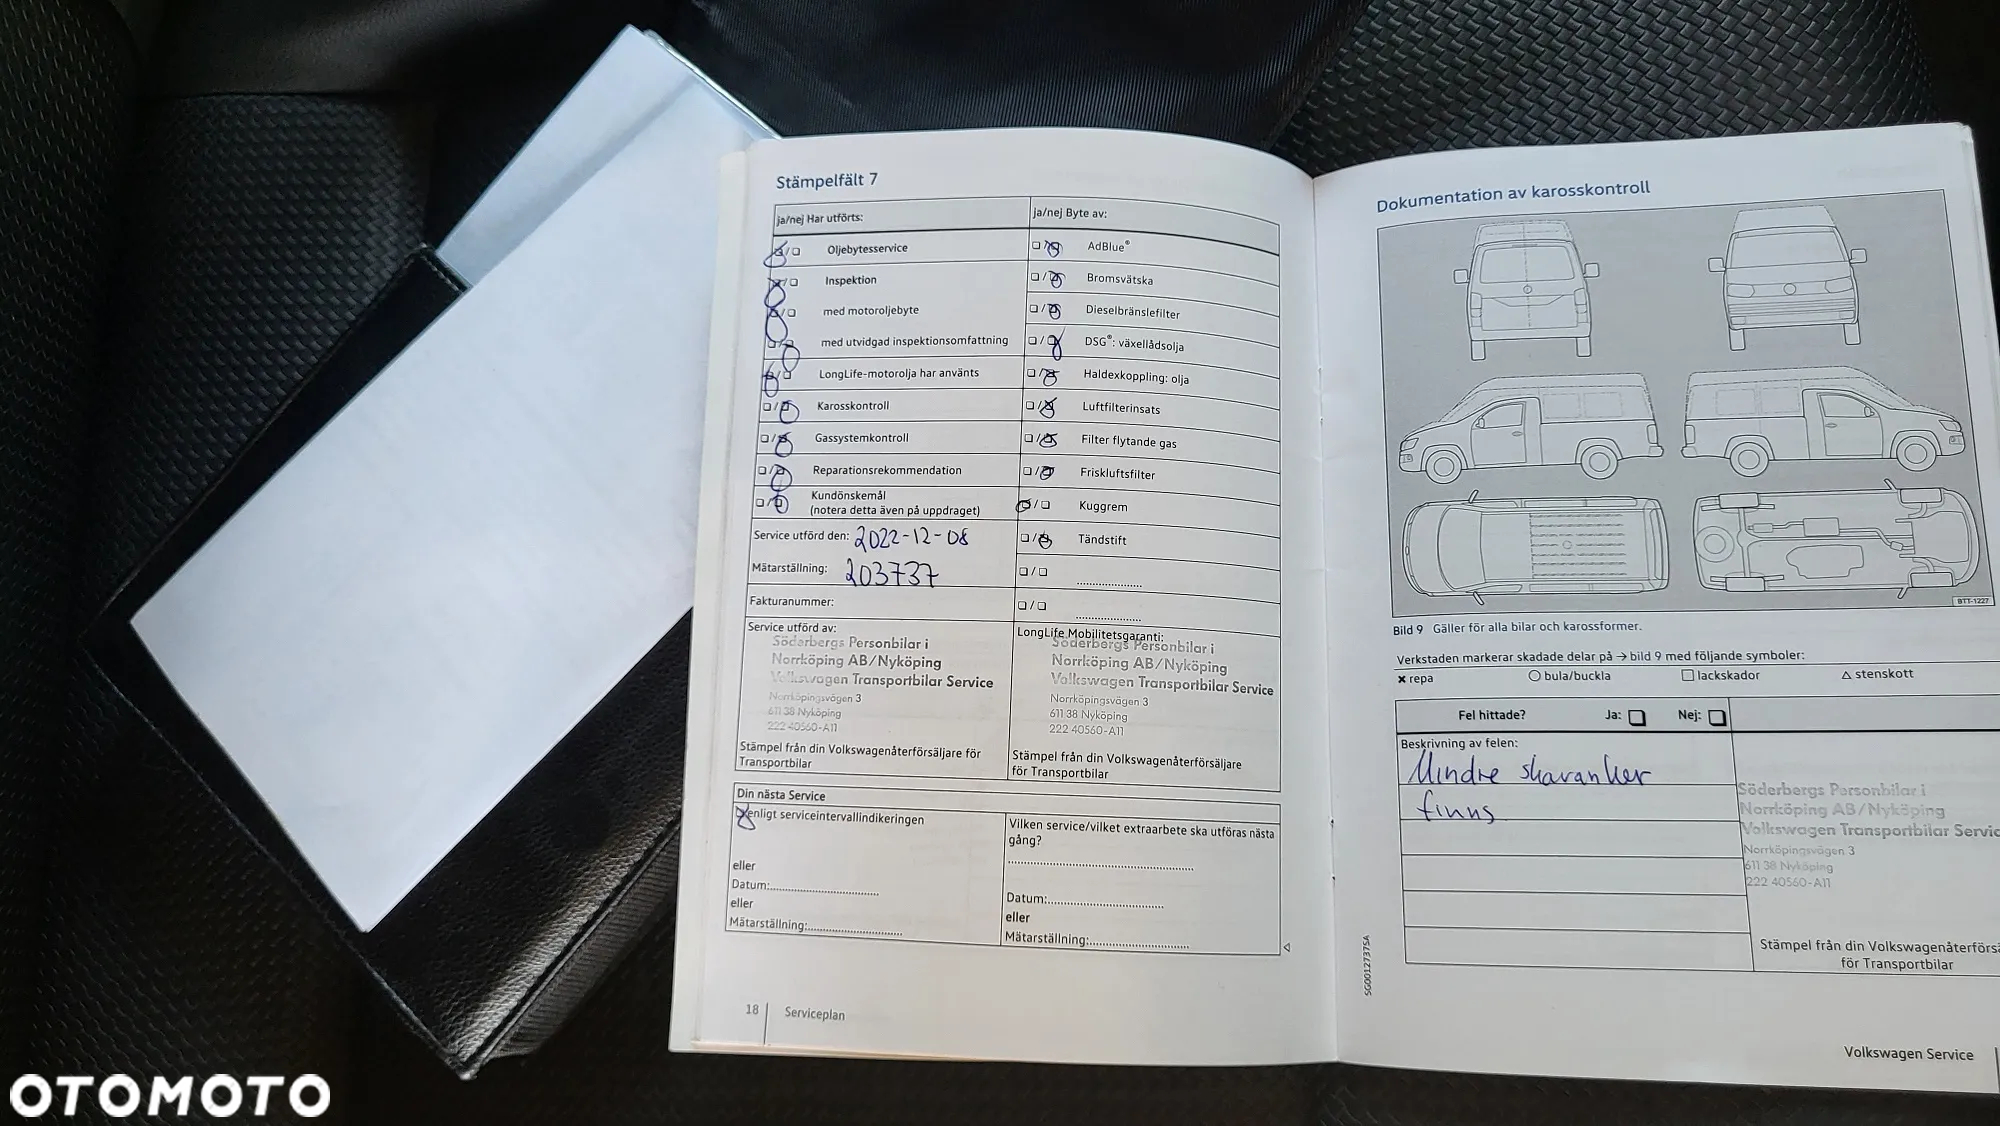 Stämpelfält 7
ja/nej Har utförts:
❏/❏ Oljebytesservice
❏/❏ Inspektion
❏/❏ med motoroljebyte
❏/❏ med utvidgad inspektionsomfattning
❏/❏ LongLife-motorolja har använts
❏/❏ Karosskontroll
❏/❏ Gassystemkontroll
❏/❏ Reparationsrekommendation
❏/❏ Kundönskemål
(notera detta även på uppdraget)
Service utförd den: 2022-12-08
Mätarställning: 203737
Fakturanummer:
Service utförd av:
Söderbergs Personbilar i
Norrköping AB/Nyköping
Volkswagen Transportbilar Service
Norrköpingsvägen 3
611 38 Nyköping
222 40560-A11
Stämpel från din Volkswagenåterförsäljare för
Transportbilar
ja/nej Byte av:
❏/❏ AdBlue®
❏/❏ Bromsvätska
❏/❏ Dieselbränslefilter
❏/❏ DSG®: växellådsolja
❏/❏ Haldexkoppling: olja
❏/❏ Luftfilterinsats
❏/❏ Filter flytande gas
❏/❏ Friskluftsfilter
❏/❏ Kuggrem
❏/❏ Tändstift
❏/❏ ......................
❏/❏ ......................
LongLife Mobilitetsgaranti:
Söderbergs Personbilar i
Norrköping AB/Nyköping
Volkswagen Transportbilar Service
Norrköpingsvägen 3
611 38 Nyköping
222 40560-A11
Stämpel från din Volkswagenåterförsäljare
för Transportbilar
Din nästa Service
❏ enligt serviceintervallindikeringen
eller
Datum:..............................
eller
Mätarställning:..........................
Vilken service/vilket extraarbete ska utföras nästa
gång?
..................................................
Datum:..............................
eller
Mätarställning:..........................
18 | Serviceplan
Dokumentation av karosskontroll
BTT-1227
Bild 9 Gäller för alla bilar och karossformer.
Verkstaden markerar skadade delar på → bild 9 med följande symboler:
✖ repa ○ bula/buckla □ lackskador △ stenskott
Fel hittade? Ja: ❏ Nej: ❏
Beskrivning av felen:
Mindre skavanker
finns
Söderbergs Personbilar i
Norrköping AB/Nyköping
Volkswagen Transportbilar Servic
Norrköpingsvägen 3
611 38 Nyköping
222 40560-A11
Stämpel från din Volkswagenåterförsä
för Transportbilar
SG0012737SA
Volkswagen Service
OTOMOTO